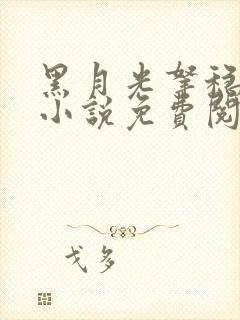 黑月光拏稳
小说免费阅
戈多